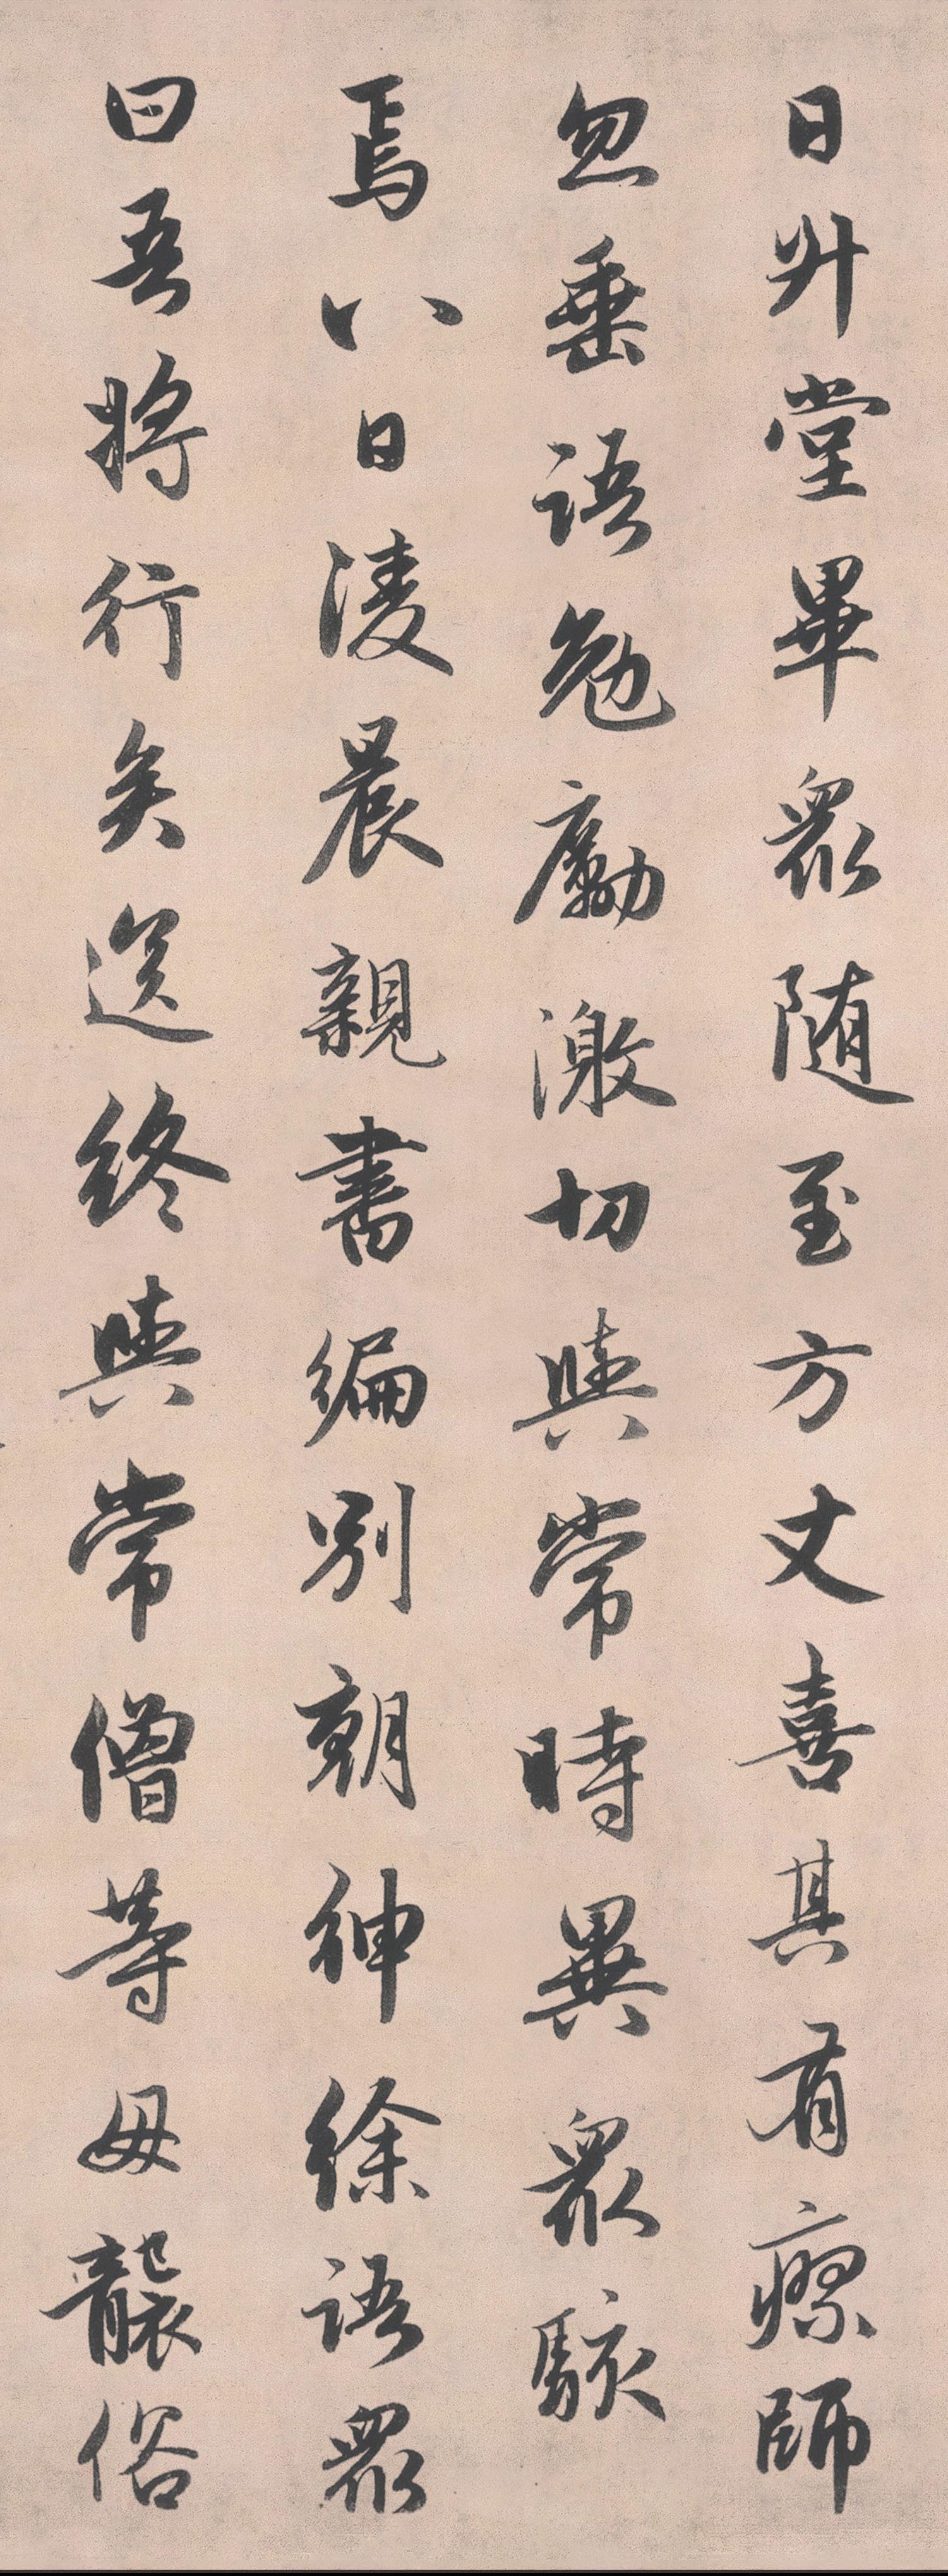 日升堂畢衆随至方丈喜其有瘳師
忽垂語勉勵激切與常時異衆駭
焉八日凌晨親書徧別朝紳徐語衆
曰吾將行矣送終與常僧等毋襲俗